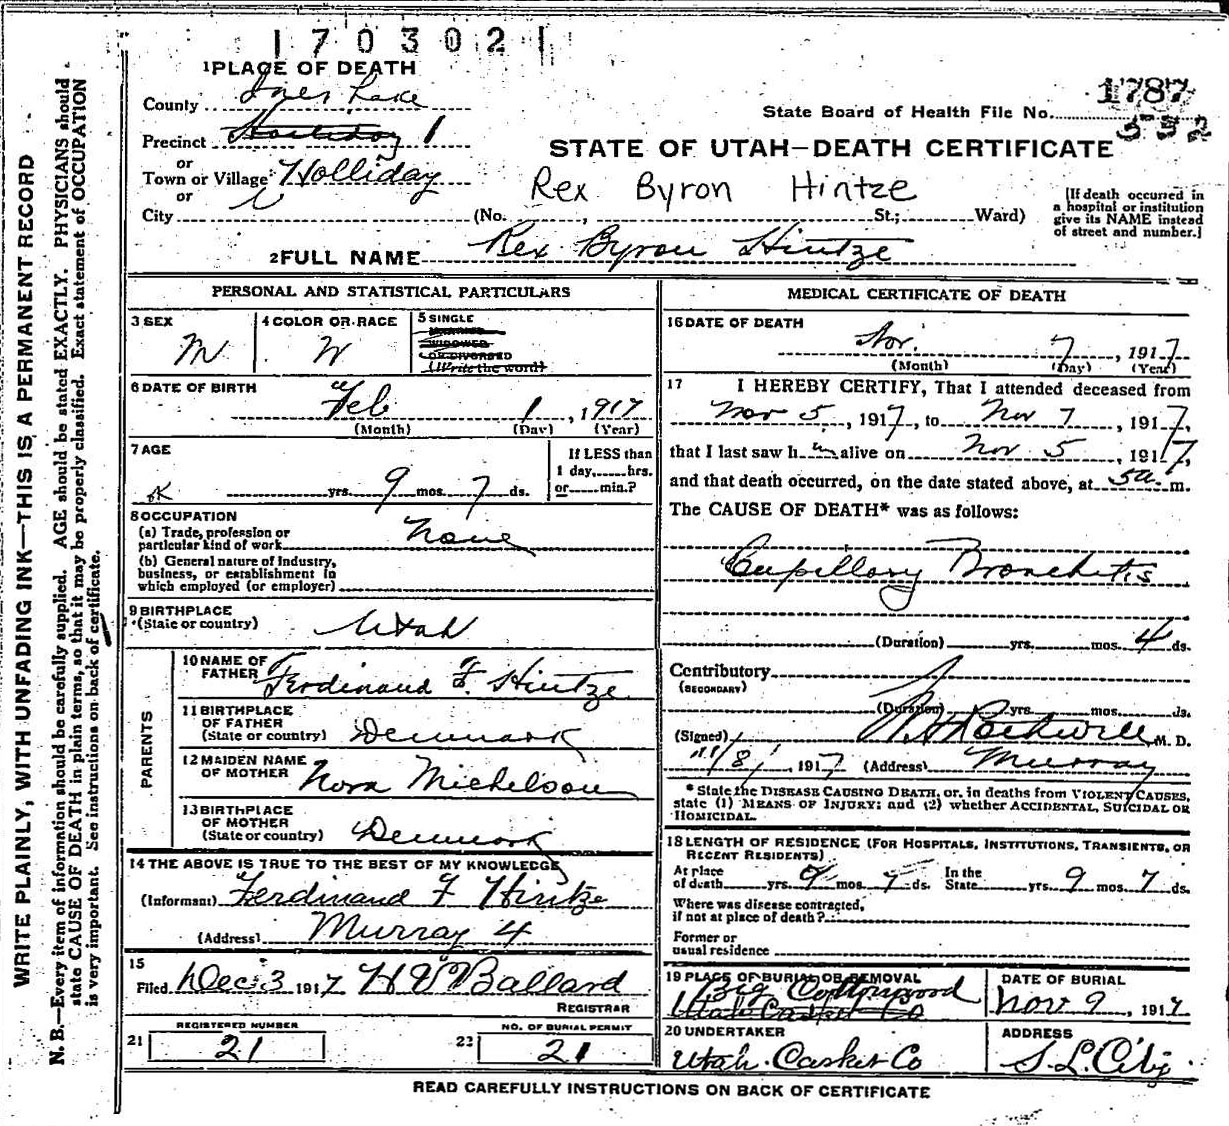 170302
1 PLACE OF DEATH
County Salt Lake
State Board of Health File No. 1787
352
Precinct Holliday 1
STATE OF UTAH—DEATH CERTIFICATE
or
Town or Village Holliday
Rex Byron Hintze
or
City (No. , St.; Ward)
[If death occurred in
a hospital or institution
give its NAME instead
of street and number.]
2 FULL NAME Rex Byron Hintze
PERSONAL AND STATISTICAL PARTICULARS
3 SEX
M
4 COLOR OR RACE
W
5 SINGLE
MARRIED
WIDOWED
OR DIVORCED
(Write the word)
6 DATE OF BIRTH
Feb 1, 1917
(Month) (Day) (Year)
7 AGE
ok yrs. 9 mos. 7 ds.
If LESS than
1 day, hrs.
or min.?
8 OCCUPATION
(a) Trade, profession or
particular kind of work None
(b) General nature of Industry,
business, or establishment in
which employed (or employer)
9 BIRTHPLACE
(State or country) Utah
PARENTS
10 NAME OF
FATHER Ferdinand F. Hintze
11 BIRTHPLACE
OF FATHER
(State or country) Denmark
12 MAIDEN NAME
OF MOTHER Nora Michelson
13 BIRTHPLACE
OF MOTHER
(State or country) Denmark
14 THE ABOVE IS TRUE TO THE BEST OF MY KNOWLEDGE
(Informant) Ferdinand F Hintze
(Address) Murray 4
15
Filed Dec 3 1917 H W Ballard
REGISTRAR
REGISTERED NUMBER
21 21
NO. OF BURIAL PERMIT
22 21
MEDICAL CERTIFICATE OF DEATH
16 DATE OF DEATH
Nov. 7, 1917
(Month) (Day) (Year)
17 I HEREBY CERTIFY, That I attended deceased from
Nov 5, 1917, to Nov 7, 1917,
that I last saw him alive on Nov 5, 1917,
and that death occurred, on the date stated above, at 5a m.
The CAUSE OF DEATH* was as follows:
Capillary Bronchitis
(Duration) yrs. mos. 4 ds.
Contributory
(SECONDARY)
(Duration) yrs. mos. ds.
(Signed) Rothwell M. D.
11/8/, 1917 (Address) Murray
* State the DISEASE CAUSING DEATH, or, in deaths from VIOLENT CAUSES,
state (1) MEANS OF INJURY; and (2) whether ACCIDENTAL, SUICIDAL OR
HOMICIDAL.
18 LENGTH OF RESIDENCE (FOR HOSPITALS, INSTITUTIONS, TRANSIENTS, OR
RECENT RESIDENTS)
At place
of death yrs. 9 mos. 7 ds. In the
State yrs. 9 mos. 7 ds.
Where was disease contracted,
if not at place of death?
Former or
usual residence
19 PLACE OF BURIAL OR REMOVAL
Big Cottonwood
Utah Casket Co
DATE OF BURIAL
Nov 9, 1917
20 UNDERTAKER
Utah Casket Co
ADDRESS
S. L. City
READ CAREFULLY INSTRUCTIONS ON BACK OF CERTIFICATE
WRITE PLAINLY, WITH UNFADING INK—THIS IS A PERMANENT RECORD
N. B.—Every item of information should be carefully supplied. AGE should be stated EXACTLY. PHYSICIANS should
state CAUSE OF DEATH in plain terms, so that it may be properly classified. Exact statement of OCCUPATION
is very important. See instructions on back of certificate.